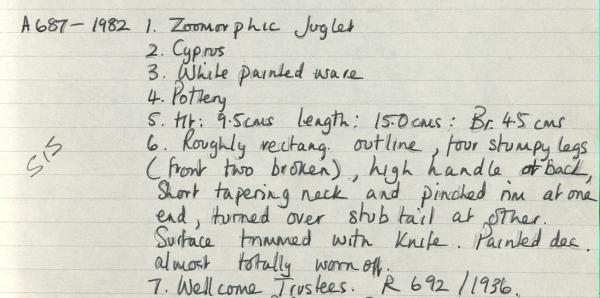 A687-1982 1. Zoomorphic Juglet
2. Cyprus
3. White painted ware
4. Pottery
5. Ht: 9.5cms length: 15.0cms: Br. 4.5 cms
6. Roughly rectang. outline, four stumpy legs
SIS
(front two broken), high handle at back,
Short tapering neck and pinched rim at one
end, turned over stub tail at other.
Surface trimmed with knife. Painted dec.
almost totally worn off.
7. Wellcome Trustees. R 692/1936.